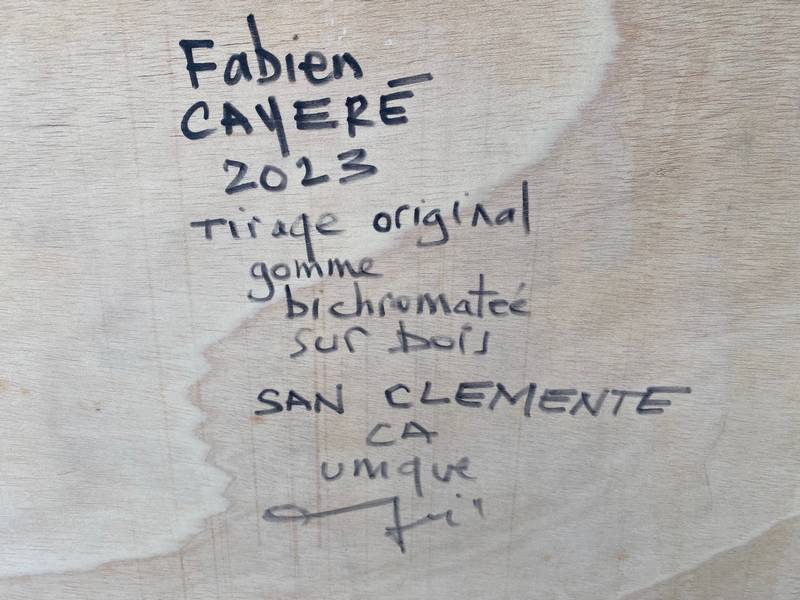 Fabien
CAYERÉ
2023
Tirage original
gomme
bichromateé
sur bois
SAN CLEMENTE
CA
unique